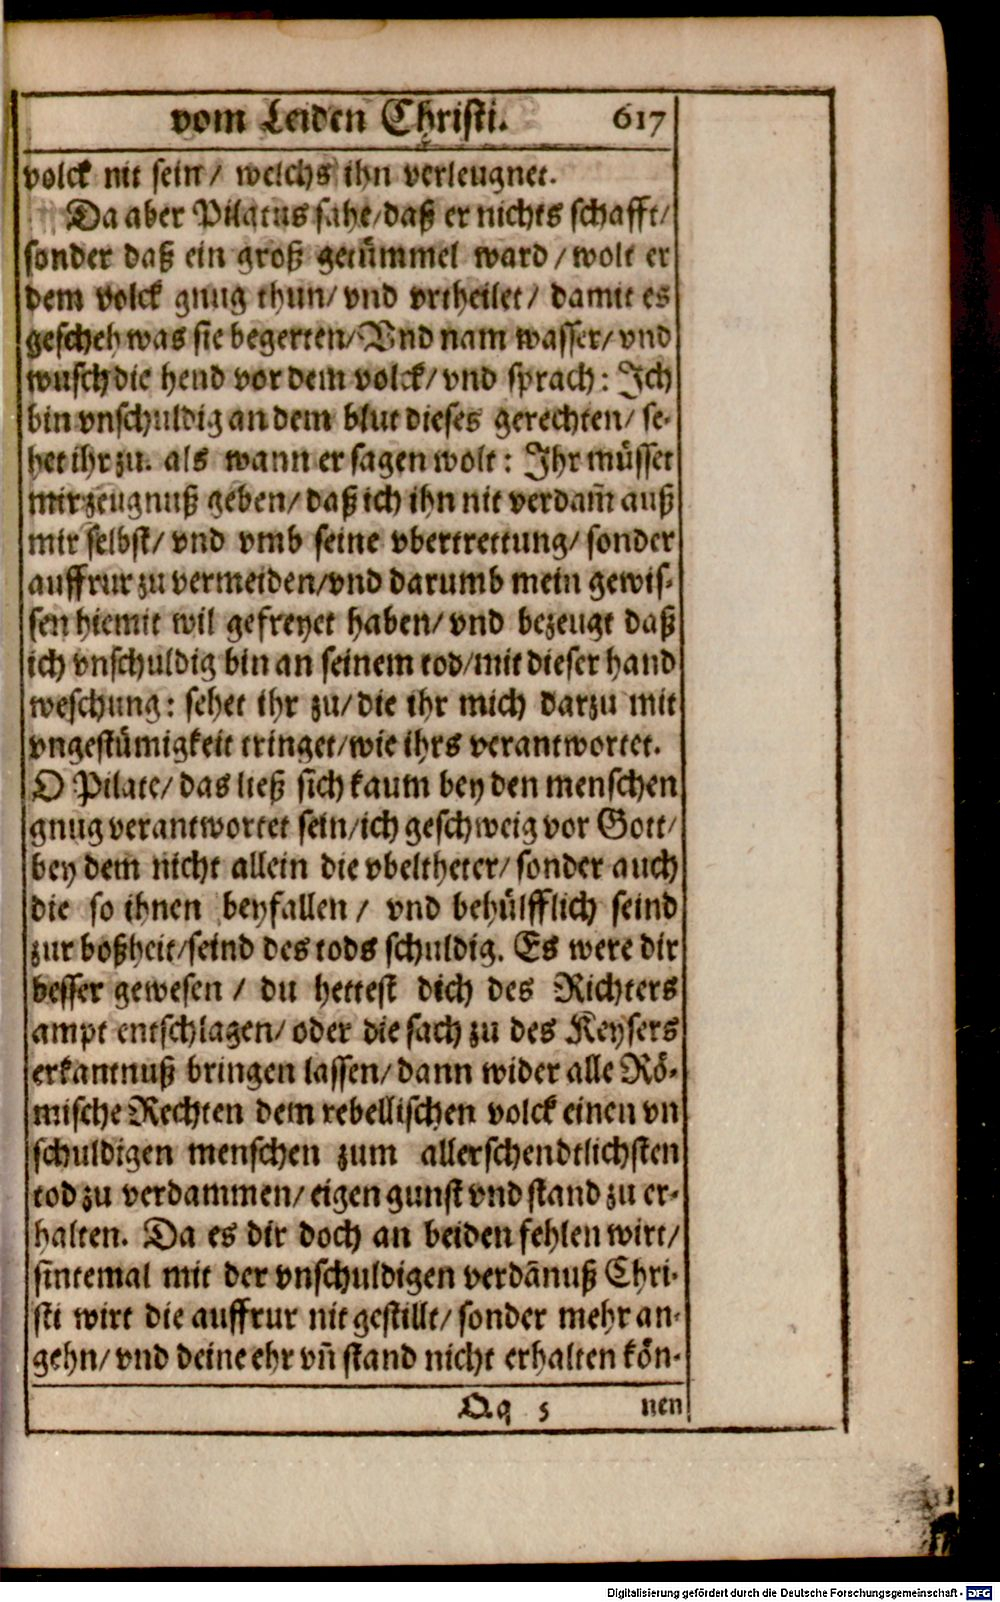 vom Leiden Christi. 617
volck nit sein/ welchs ihn verleugnet.
Da aber Pilatus sahe/daß er nichts schafft/
sonder daß ein groß getümmel ward/wolt er
dem volck gnug thun/ vnd vrtheilet/ damit es
gescheh was sie begerten/Vnd nam wasser/vnd
wusch die hend vor dem volck/vnd sprach: Ich
bin vnschuldig an dem blut dieses gerechten/ se-
het ihr zu. als wann er sagen wolt: Ihr müsset
mir zeugnuß geben/ daß ich ihn nit verdam̃ auß
mir selbst/ vnd vmb seine vbertrettung/ sonder
auffrur zu vermeiden/vnd darumb mein gewis-
sen hiemit wil gefreyet haben/ vnd bezeugt daß
ich vnschuldig bin an seinem tod/mit dieser hand
weschung: sehet ihr zu/die ihr mich darzu mit
vngestümigkeit tringet/wie ihrs verantwortet.
O Pilate/das ließ sich kaum bey den menschen
gnug verantwortet sein/ich geschweig vor Gott/
bey dem nicht allein die vbeltheter/ sonder auch
die so ihnen beyfallen/ vnd behülfflich seind
zur boßheit/seind des tods schuldig. Es were dir
besser gewesen/ du hettest dich des Richters
ampt entschlagen/ oder die sach zu des Keysers
erkantnuß bringen lassen/dann wider alle Rö-
mische Rechten dem rebellischen volck einen vn
schuldigen menschen zum allerschendtlichsten
tod zu verdammen/eigen gunst vnd stand zu er-
halten. Da es dir doch an beiden fehlen wirt/
sintemal mit der vnschuldigen verdãnuß Chri-
sti wirt die auffrur nit gestillt/ sonder mehr an-
gehn/ vnd deine ehr vñ stand nicht erhalten kön-
Qq 5 nen
Digitalisierung gefördert durch die Deutsche Forschungsgemeinschaft - DFG